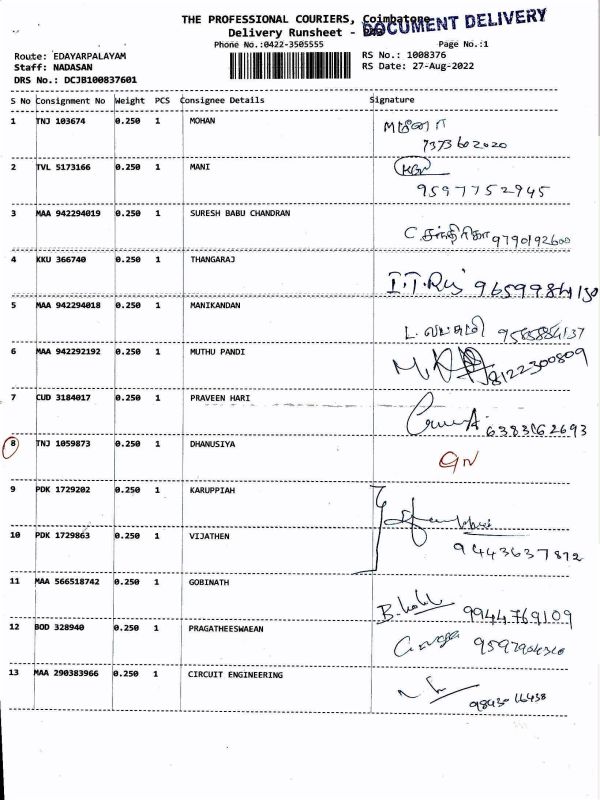 THE PROFESSIONAL COURIERS, Coimbatore
DOCUMENT DELIVERY
Delivery Runsheet -
Phone No.:0422-3505555 Page No.:1
Route: EDAYARPALAYAM RS No.: 1008376
Staff: NADASAN RS Date: 27-Aug-2022
DRS No.: DCJB100837601
S No Consignment No Weight PCS Consignee Details Signature
1 TNJ 103674 0.250 1 MOHAN
7373602020
2 TVL 5173166 0.250 1 MANI
9597752945
3 MAA 942294019 0.250 1 SURESH BABU CHANDRAN
9790192600
4 KKU 366740 0.250 1 THANGARAJ
I.T.Raj
5 MAA 942294018 0.250 1 MANIKANDAN
6 MAA 942292192 0.250 1 MUTHU PANDI
8122300809
7 CUD 3184017 0.250 1 PRAVEEN HARI
6383162693
8 TNJ 1059873 0.250 1 DHANUSIYA
9 PDK 1729202 0.250 1 KARUPPIAH
10 PDK 1729863 0.250 1 VIJATHEN
9443637872
11 MAA 566518742 0.250 1 GOBINATH
9944769109
12 BOD 328940 0.250 1 PRAGATHEESWAEAN
13 MAA 290383966 0.250 1 CIRCUIT ENGINEERING